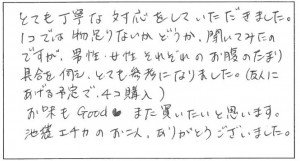 とても丁寧な対応をしていただきました。
1コでは物足りないかどうか、聞いてみたの
ですが、男性・女性それぞれのお腹のたまり
具合を伺え、とても参考になりました。(友人に
あげる予定で、4コ購入)
お味もGood♥ また買いたいと思います。
池袋エチカのお二人、ありがとうございました。